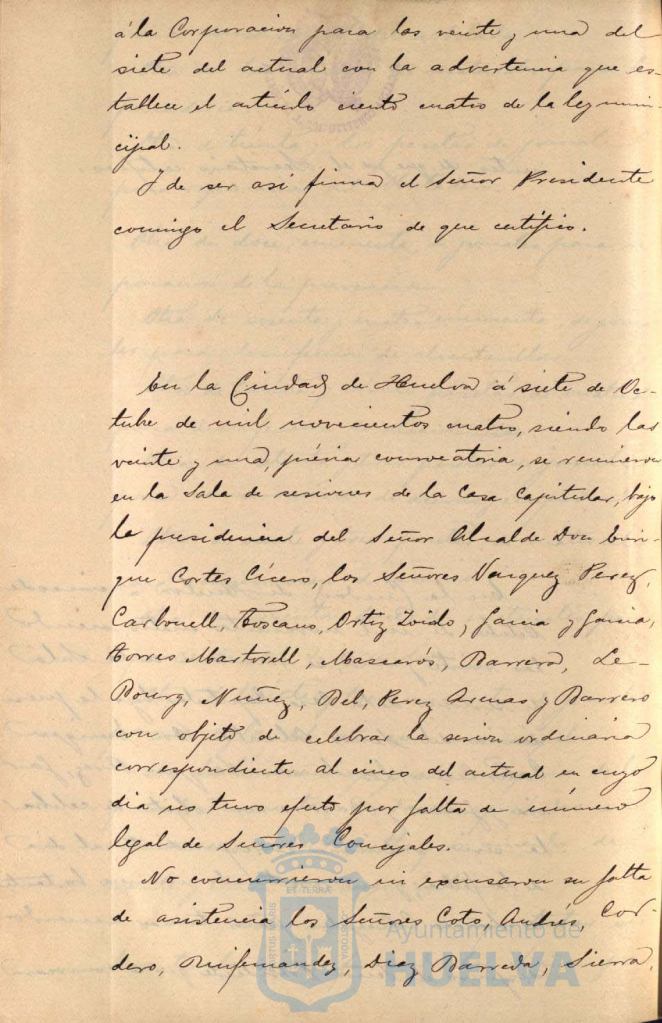 á la Corporacion para las veinte y una del
siete del actual con la advertencia que es-
tablece el artículo ciento cuatro de la ley muni-
cipal.
Y de ser así firma el Señor Presidente
comigo el Secretario de que certifico.
En la Ciudad de Huelva á siete de Oc-
tubre de mil novecientos cuatro, siendo las
veinte y una, prévia convocatoria, se reunieron
en la Sala de sesiones de la Casa Capitular, bajo
la presidencia del Señor Alcalde Don Enri-
que Cortes Cícero, los Señores Vazquez Perez,
Carbonell, Toscano, Ortiz Toido, Garcia y Garcia,
Torres Martorell, Mascarós, Barrera, Le-
Bourg, Nuñez, Bel, Perez Arenas y Barrero
con objeto de celebrar la sesion ordinaria
correspondiente al cinco del actual en cuyo
dia no tuvo efecto por falta de número
legal de Señores Concejales.
No concurrieron ni excusaron su falta
de asistencia los Señores Coto, Andrés, Cor-
dero, Ruifernandez, Diaz Barreda, Sierra,
ET TERRÆ
PORTUS MARIS
CUSTODIA
Ayuntamiento de
HUELVA